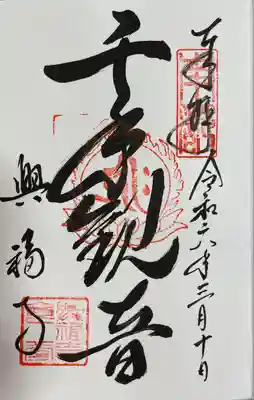 奉拝 令和六年三月十日
千手観音
興福寺